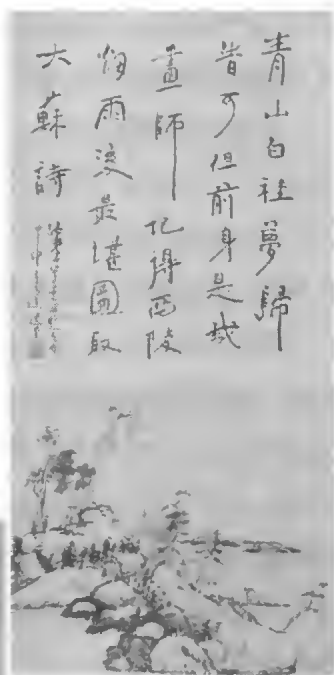 青山白社夢歸
旹可但前身是
畫師記得西陵
烟雨後最堪圖取
大蘇詩